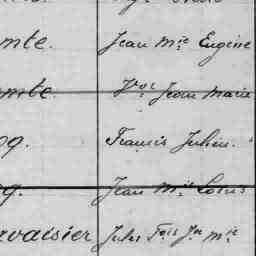 mte. Jean Mie Eugène
mte Vor Jean Marie
Francis Julien.
g. Jean Mie Louis
rvaisier Jules Fois Jn Mie